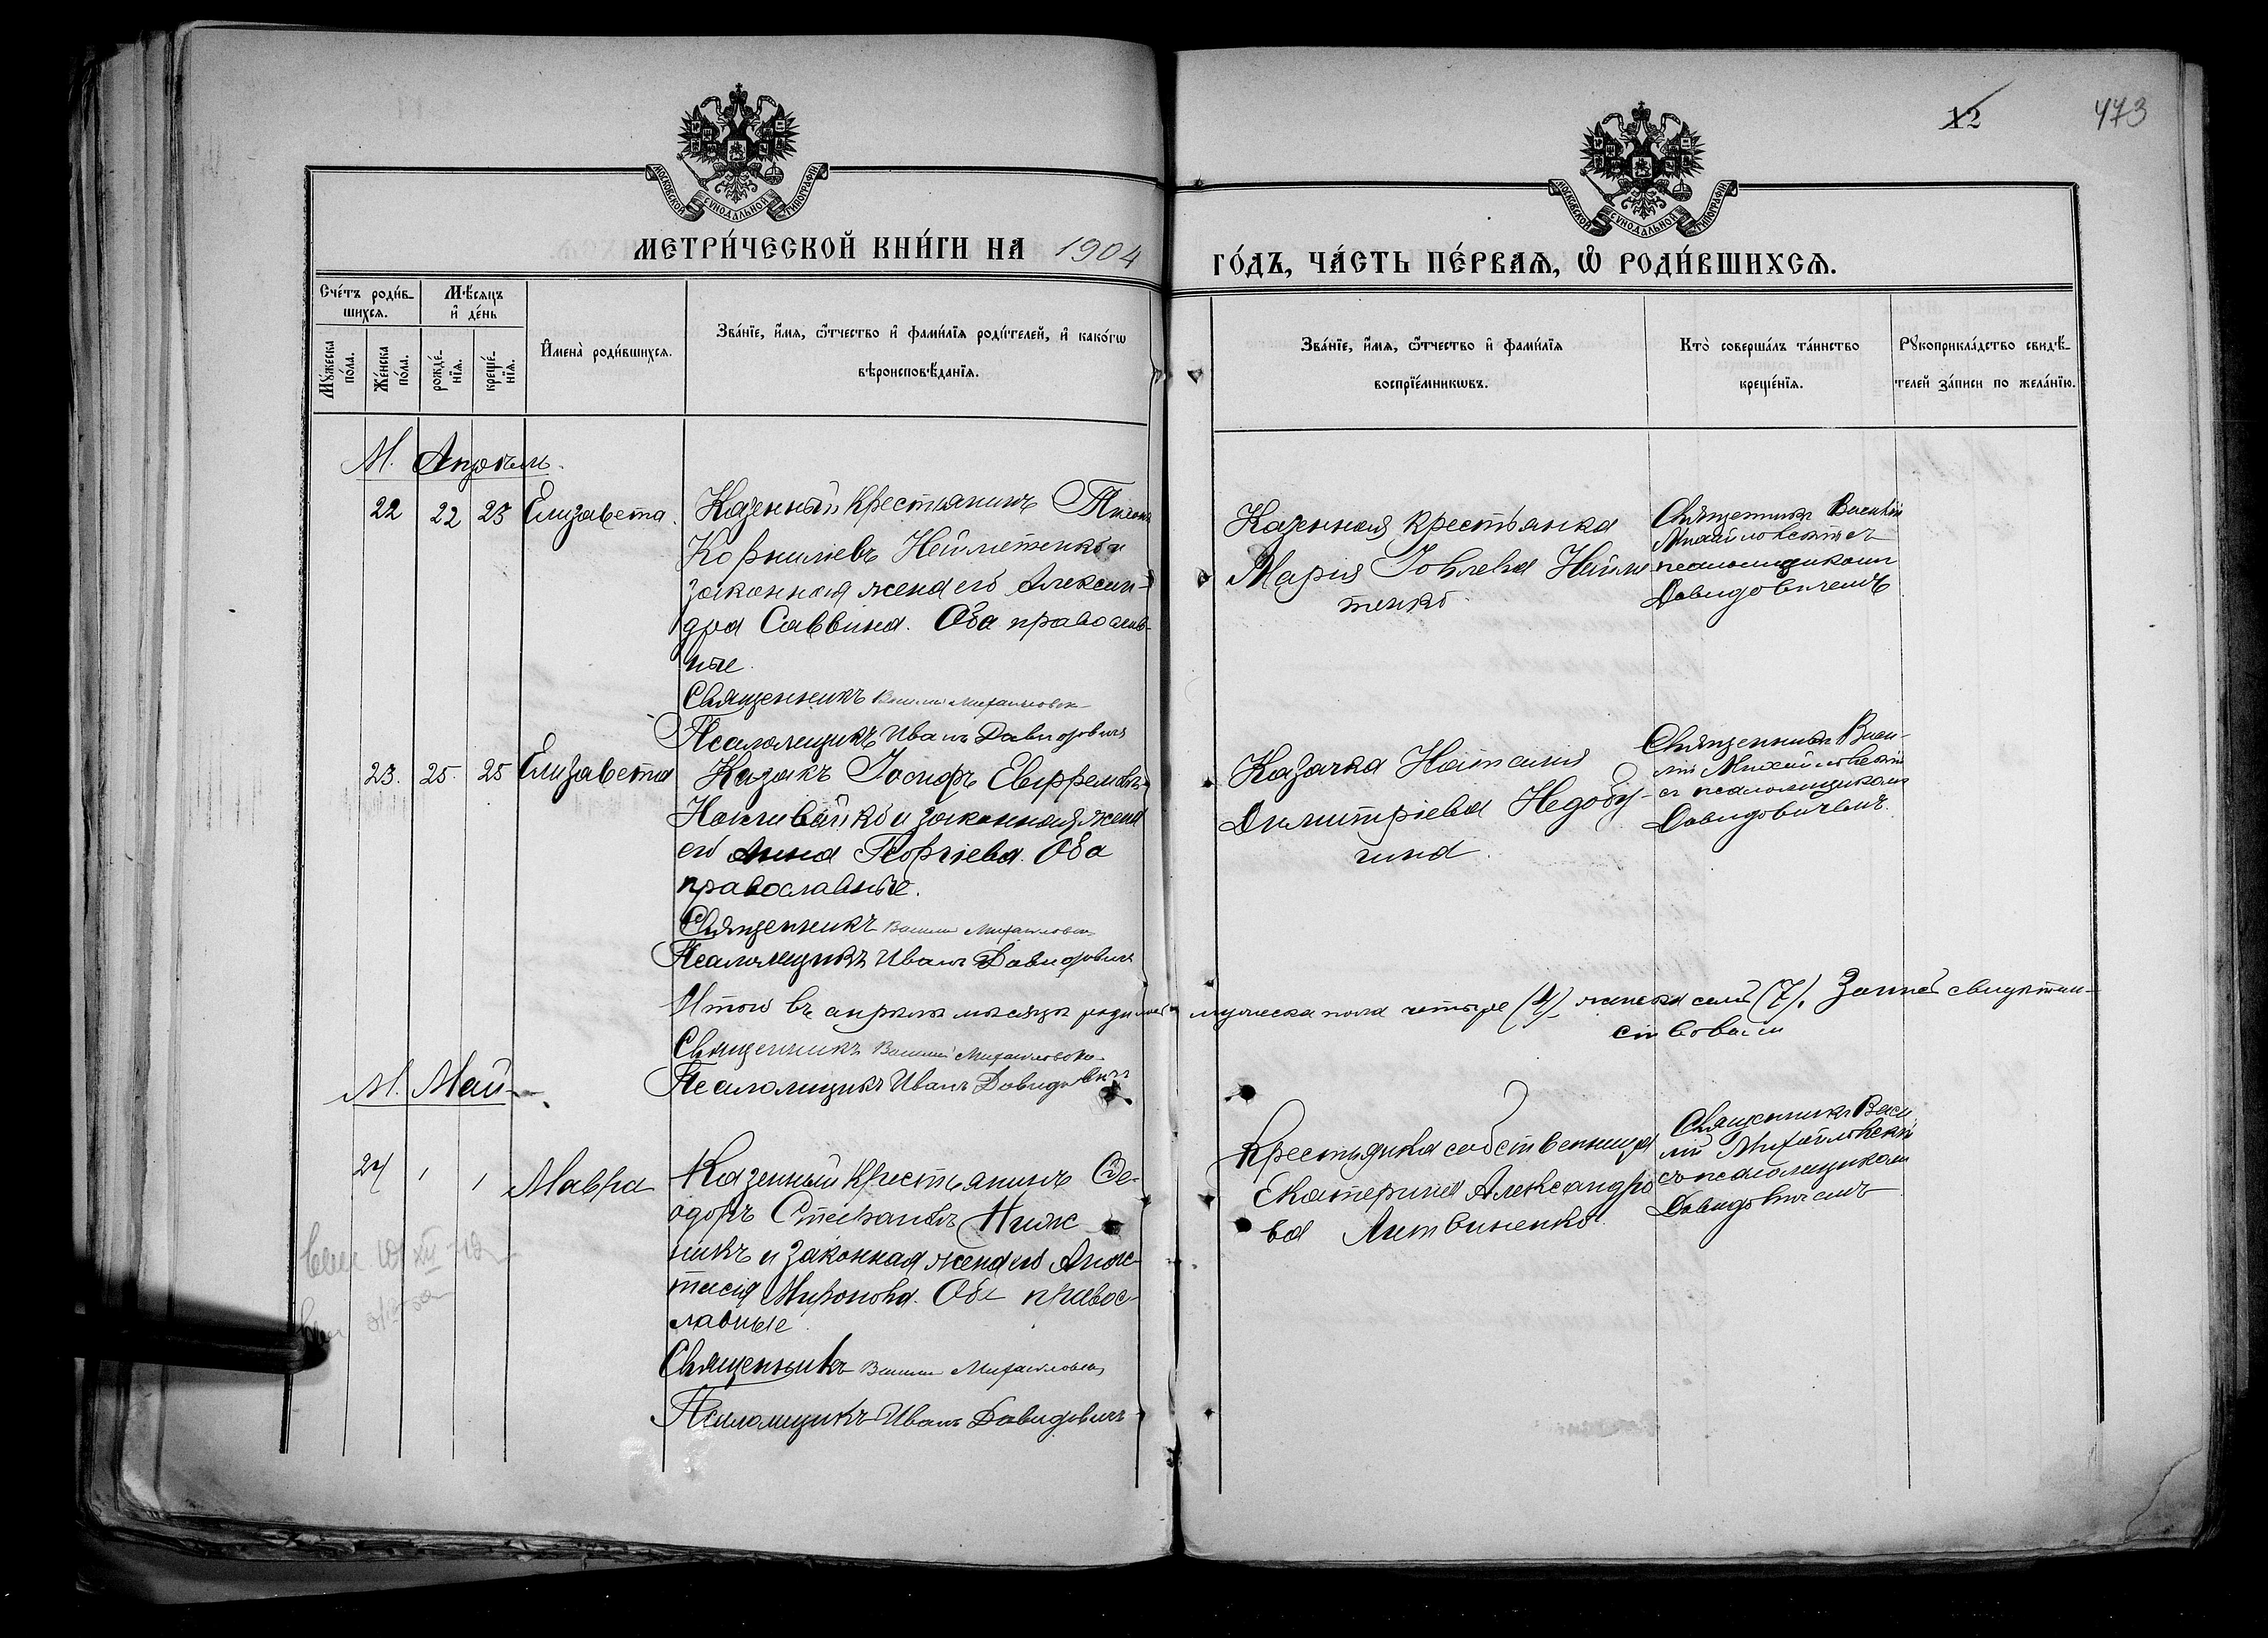 12
473
МОСКОВСКОЙ СѴНОДАЛЬНОЙ ТИПОГРАФІИ
МОСКОВСКОЙ СѴНОДАЛЬНОЙ ТИПОГРАФІИ
МЕТРИ́ЧЕСКОЙ КНИ́ГИ НА 1904
ГО́ДЪ, ЧА́СТЬ ПЕ́РВАѦ, Ѡ҆ РОДИ́ВШИХСѦ.
Сче́тъ роди́в-
шихсѧ.
Мѣ́сѧцъ
и҆ де́нь
Мꙋ́жеска
по́ла.
Же́нска
по́ла.
рожде́-
нїѧ.
креще́-
нїѧ.
И҆мена̀ роди́вшихсѧ.
Зва́нїе, и҆́мѧ, ѻ҆́тчество и҆ фами́лїѧ роди́телей, и҆ како́гѡ
вѣроисповѣ́данїѧ.
Зва́нїе, и҆́мѧ, ѻ҆́тчество и҆ фами́лїѧ
воспрїе́мникѡвъ.
Кто̀ соверша́лъ та́инство
креще́нїѧ.
Рꙋкоприкла́дство свидѣ́-
телей за́писи по жела́нїю.
М. Апрѣль
22 22 23 Елизавета.
Казенный крестьянинъ
Корнилiевъ и
законная жена его Алексан-
дра Саввина. Оба православ-
ные.
Священникъ Василий Михайловск
Псаломщикъ Иванъ Давидовичъ
Казенная крестьянка
Марiя Іовлева
тенко
Священникъ Василiй
Михайловскiй съ
псаломщикомъ
Давидовичемъ
23. 25. 25 Елизавета
Казакъ Іосифъ Евфремовъ
Наливайко и законная жена
его Анна Георгіева. Оба
православные.
Священникъ Василий Михайловск
Псаломщикъ Иванъ Давидовичъ
Казачка Наталія
Димитріева Недобу-
гина
Священникъ Васи-
лiй Михайловскiй
съ псаломщикомъ
Давидовичемъ.
Итого въ апрѣлѣ мѣсяцѣ родилось мужеска пола четыре (4) женска семь (7). свидѣтель-
ствовали
Священникъ Василий Михайловск
Псаломщикъ Иванъ Давидовичъ
М. Май
24 1 1 Мавра
Казенный крестьянинъ Ѳе-
одоръ Стефановъ
никъ и законная жена его Анас-
тасія Миронова. Оба правос-
лавные.
Священникъ Василий Михайловск
Псаломщикъ Иванъ Давидовичъ
Крестьянка собственница
Екатерина Александро
ва Литвиненко.
Священникъ Васи
лiй Михайловскiй
съ псаломщикомъ
Давидовичемъ